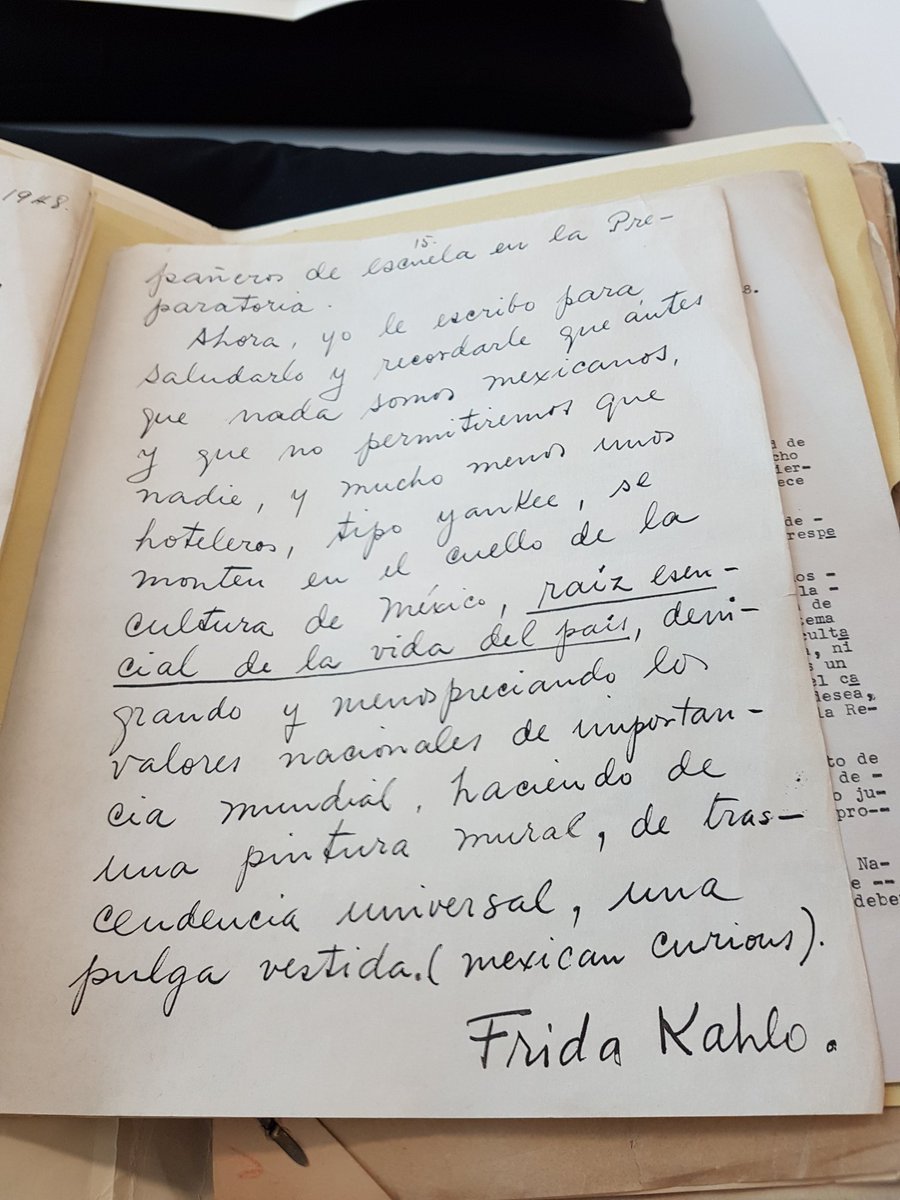 1948.
15.
pañeros de escuela en la Pre-
paratoria.
Ahora, yo le escribo para
saludarlo y recordarle que ántes
que nada somos mexicanos,
y que no permitiremos que
nadie, y mucho menos unos
hoteleros, tipo yankee, se
monten en el cuello de la
cultura de México, raíz esen-
cial de la vida del país, deni-
grando y menospreciando los
valores nacionales de importan-
cia mundial, haciendo de
una pintura mural, de tras-
cendencia universal, una
pulga vestida.(mexican curious).
Frida Kahlo.
8.
a de
cho
ier-
ece
de -
respe
os -
la -
de
tema
culta
, ni
s un
el ca
desea,
la Re-
to de
de -
o ju-
pro--
Na-
e --
debe